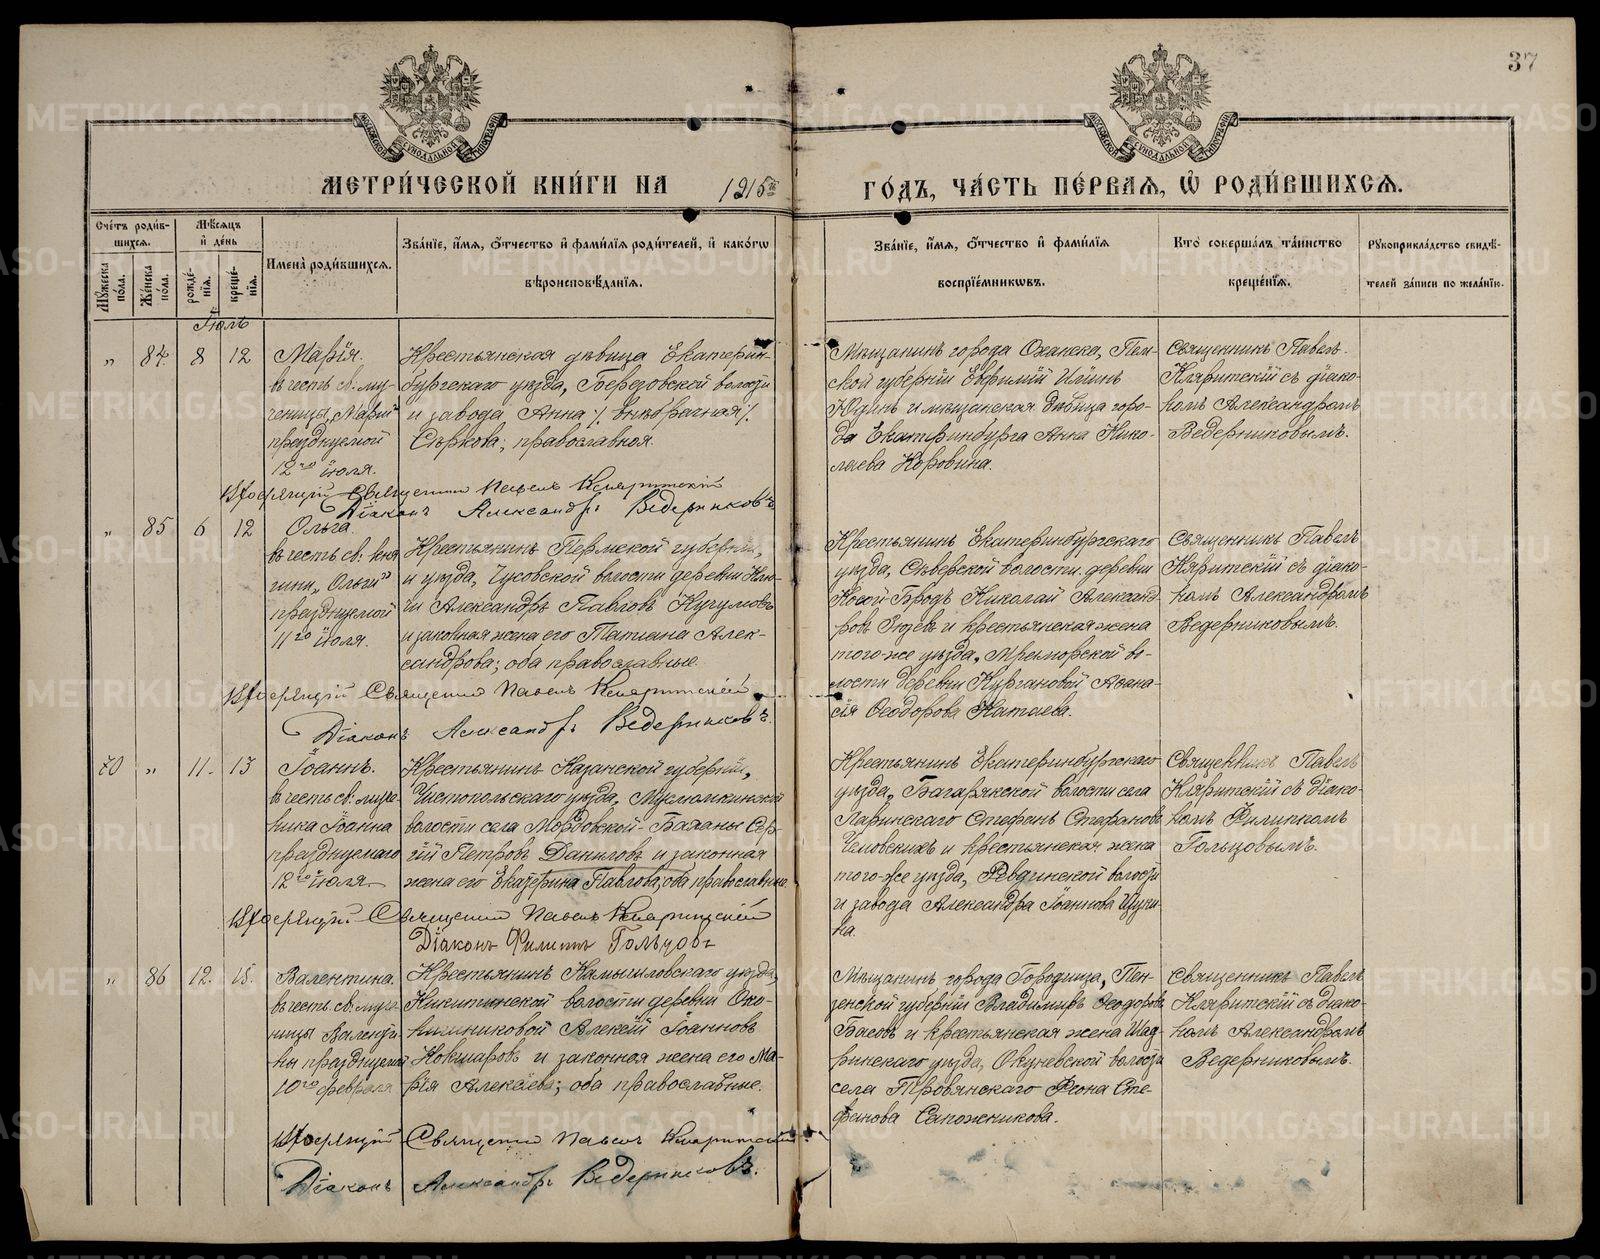 37
МЕТРИ́ЧЕСКОЙ КНИ́ГИ НА 1915й ГО́ДЪ, ЧА́СТЬ ПЕ́РВАЯ, Ѡ҆ РОДИ́ВШИХСЯ.
Сче́тъ роди́в-
шихся.
Мѣ́сяцъ
и҆ де́нь
Мꙋ́жеска по́ла.
Же́нска по́ла.
рожде́-
нїя.
креще́-
нїя.
И҆мена̀ роди́вшихся.
Зва́нїе, и҆́мя, ѻ҆́тчество и҆ фами́лїя роди́телей, и҆ како́гѡ
вѣроисповѣ́данїя.
Зва́нїе, и҆́мя, ѻ҆́тчество и҆ фами́лїя
воспрїе́мникѡвъ.
Кто̀ соверша́лъ та́инство
креще́нїя.
Рꙋкоприкла́дство свидѣ́-
телей за́писи по жела́нїю.
Іюль
" 84 8 12
Марія.
въ честь св. му-
ченицы „Маріи"
празднуемой
12го іюля.
Крестьянская дѣвица Екатерин-
бургскаго уѣзда, Березовской волости
и завода Анна /внѣбрачная/
Сыркова; православная.
Мѣщанинъ города Оханска, Перм-
ской губерніи Евфимій Ильинъ
Юдинъ и мѣщанская дѣвица горо-
да Екатеринбурга Анна Нико-
лаева Коровина.
Священникъ Павелъ
Кляритскій съ діако-
номъ Александромъ
Ведерниковымъ.
Священникъ Павелъ Кляритскій
Діаконъ Александръ Ведерниковъ
" 85 6 12
Ольга.
въ честь св. кня-
гини „Ольги"
празднуемой
11го іюля.
Крестьянинъ Пермской губерніи,
и уѣзда, Чусовской волости деревни Клю-
чи Александръ Павловъ Кучумовъ
и законная жена его Татіана Алек-
сандрова; оба православные.
Крестьянинъ Екатеринбургскаго
уѣзда, Сѣверской волости деревни
Косой-Бродъ Николай Александ-
ровъ Зюзевъ и крестьянская жена
того-же уѣзда, Мраморской во-
лости деревни Кургановой Аѳана-
сія Ѳеодорова Катаева.
Священникъ Павелъ
Кляритскій съ діако-
номъ Александромъ
Ведерниковымъ.
Священникъ Павелъ Кляритскій
Діаконъ Александръ Ведерниковъ.
70 " 11. 13
Іоаннъ.
въ честь св. муче-
ника Іоанна
празднуемаго
12го іюля
Крестьянинъ Казанской губерніи,
Чистопольскаго уѣзда, Муслюмкинской
волости села Мордовской-Баганы Сер-
гій Петровъ Даниловъ и законная
жена его Екатерина Павлова; оба православные.
Крестьянинъ Екатеринбургскаго
уѣзда, Багарякской волости села
Ларинскаго Стефанъ Стефановъ
и крестьянская жена
того-же уѣзда, Ревдинской волости
и завода Александра Іоаннова Щуки-
на.
Священникъ Павелъ
Кляритскій съ діако-
номъ Филиппомъ
Гольцовымъ.
Священникъ Павелъ Кляритскій
Діаконъ Филиппъ Гольцовъ
" 86 12. 15.
Валентина.
въ честь св. муче-
ницы Валенти-
ны празднуемой
10го февраля
Крестьянинъ Камышловскаго уѣзда,
Никитинской волости деревни Око-
Алексій Іоанновъ
Кокшаровъ и законная жена его Ма-
рія Алексѣева; оба православные.
Мѣщанинъ города Городища, Пен-
зенской губерніи Владиміръ Ѳеодоровъ
Басовъ и крестьянская жена Шад-
ринскаго уѣзда, Окуневской волости
села Стефанова Сапожникова.
Священникъ Павелъ
Кляритскій съ діако-
номъ Александромъ
Ведерниковымъ.
Священникъ Павелъ Кляритскій
Діаконъ Александръ Ведерниковъ.
METRIKI.GASO-URAL.RU